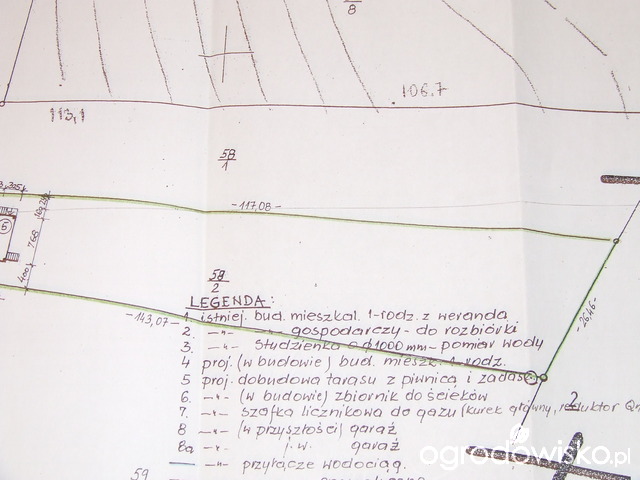 8
106.7
113,1
58
1
-117,08-
6
768
400
58
2
-26,46-
LEGENDA:
-143,07-
1. istniej. bud. mieszkal. 1-rodz. z weranda
2. -"- -"- gospodarczy - do rozbiórki
3. -"- studzienka ϕ1000mm - pomiar wody
4 proj. (w budowie) bud. mieszk. 1-rodz.
5 proj. dobudowa tarasu z piwnicą i zadasz
6. -"- (w budowie) zbiornik do ścieków
7. -"- szafka licznikowa do gazu (kurek główny, reduktor
2
8 -"- (w przyszłości) garaż
8a -"- j.w. garaż
-"- przyłącze wodociąg.
59
ogrodowisko.pl